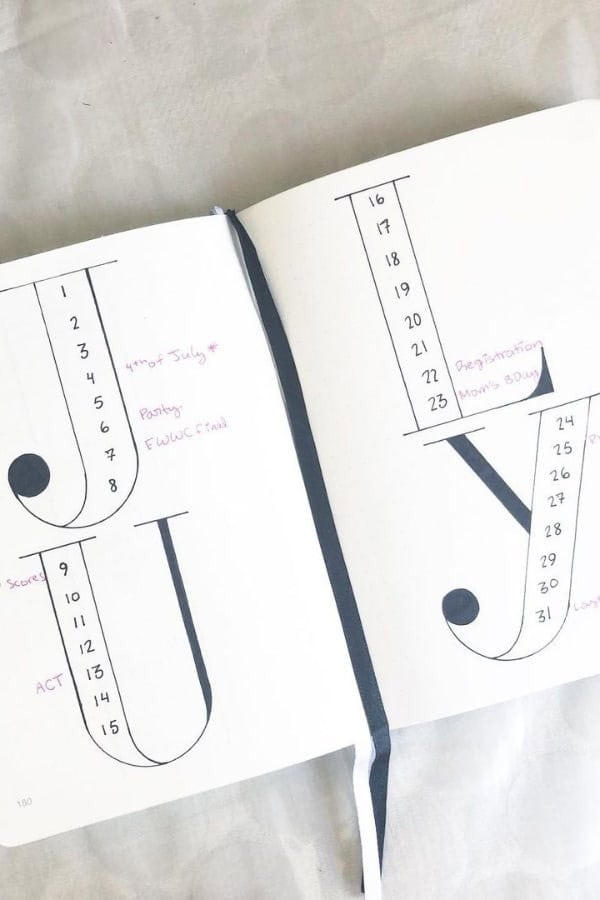 J
1
2
3
4 4th of July*
5
6 Party
7 EWWC final
8
U
Scores 9
10
11
12
ACT 13
14
15
180
L
16
17
18
19
20
21
22 Registration
23 Mom's BDay
y
24
25
26
27
28
29
30
31